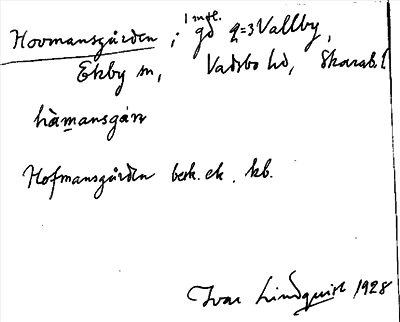 Hovmansgården, 1 mtl. gd = 3 Vallby,
Ekby sn, Vadsbo hd, Skarab. l
hàmansgár̄n
Hofmansgården besk. ek. kb.
Ivar Lindquist 1928